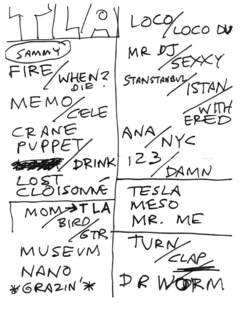 TLA
SAMMY
FIRE/WHEN?
DIE!
MEMO/CELE
CRANE
PUPPET
/DRINK
LOST
CLOISONNÉ
MOM→TLA
BIRD/GTR
MUSEUM
NANO
*GRAZIN'*
LOCO/LOCO DU
MR DJ/SEXXY
STANSTANBUL/ISTAN
WITH
ERED
ANA/NYC
123/DAMN
TESLA
MESO
MR. ME
TURN/CLAP
DR WORM